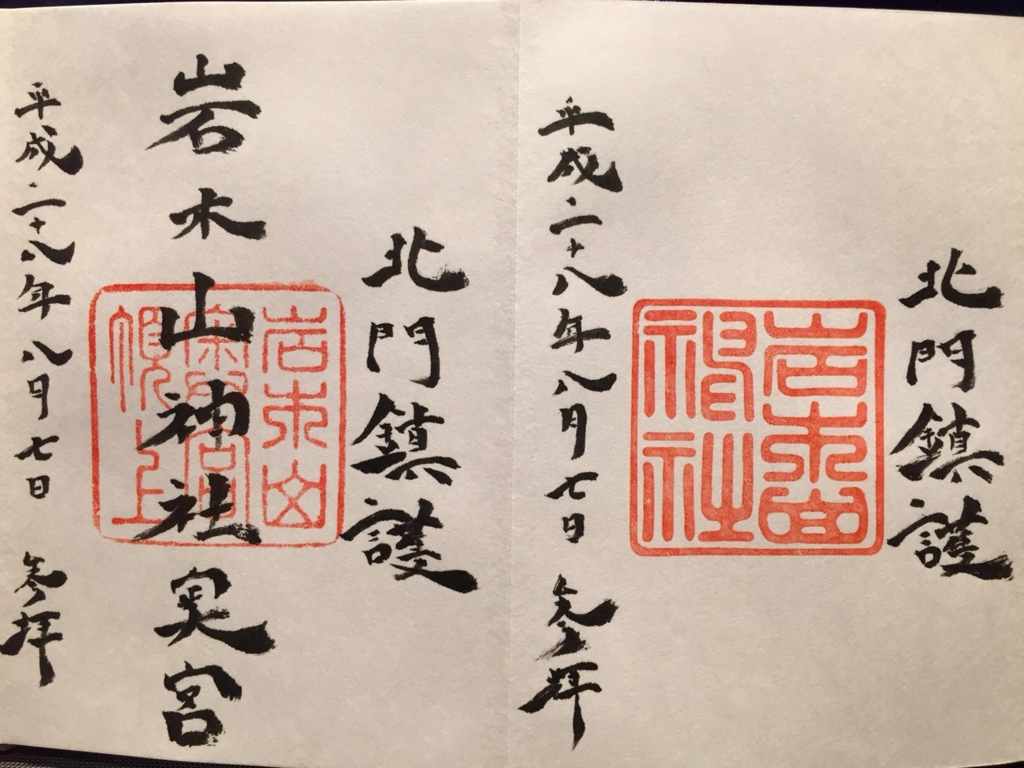 北門鎮護
岩木山
神社
平成二十八年八月七日 参拝
北門鎮護
岩木山神社奥宮
岩木山
奥宮
頂上
平成二十八年八月七日 参拝